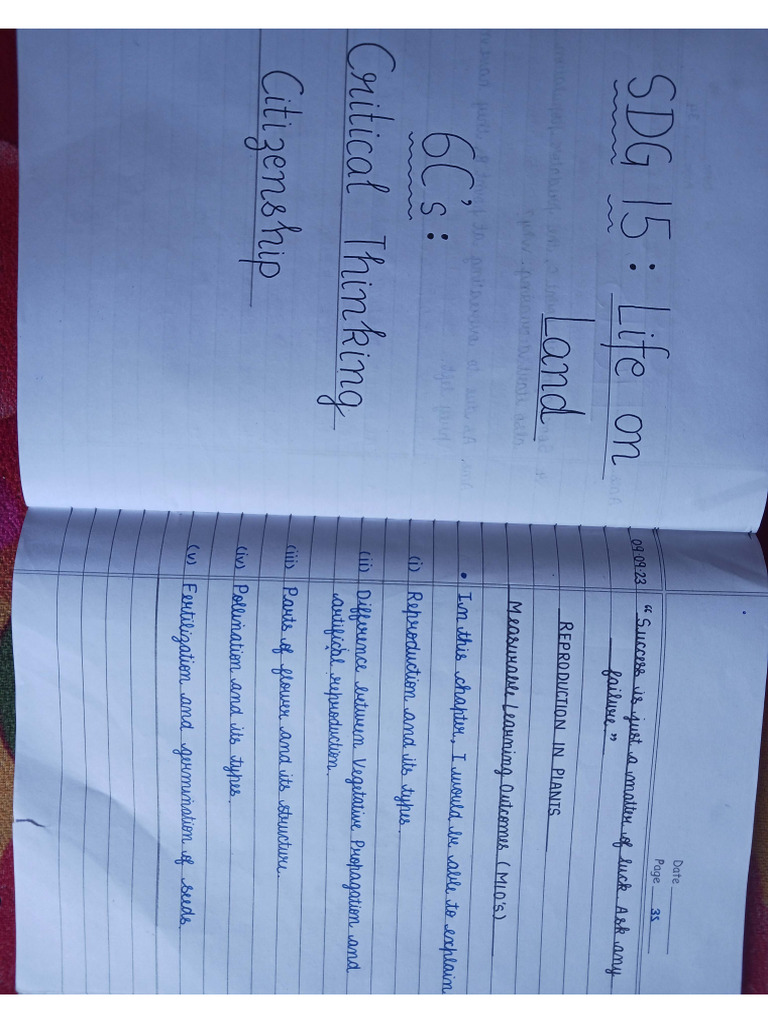 SDG 15: Life on
Land
6C's:
Critical Thinking
Citizenship
Date
Page 35
09.09.23 "Success is just a matter of luck. Ask any
failure"
REPRODUCTION IN PLANTS
Measurable Learning Outcomes (MLO'S)
• In this chapter, I would be able to explain
(i) Reproduction and its types.
(ii) Difference between Vegetative Propagation and
artificial reproduction.
(iii) Parts of flower and its structure.
(iv) Pollination and its types.
(v) Fertilization and germination of seeds.